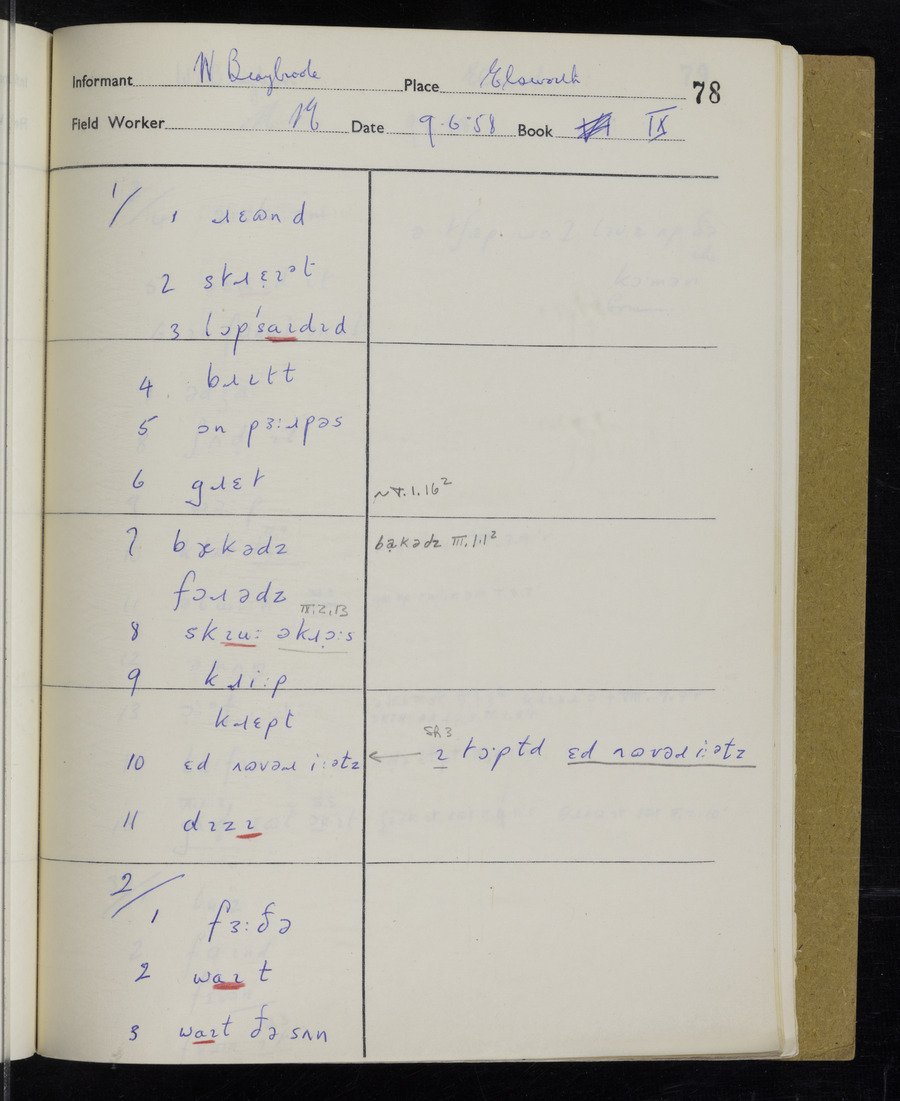 Informant W Braybrooke Place Elsworth 78
Field Worker Date 9.6.58 Book IX
1/ 1 ɹɛʊnd
2 stɹɛ̣ɪᵊt
3 lɔpˈsaɪdɪd
4 bɹɪtt
5 ən pɜːɹpəs
6 gɹɛt
.1.16²
7 bækədz bạkədz III.1.1²
fɔɹədz
III.2.13
8 skɪuː əkɹɔ̣ːs
9 kɹiːp
kɹɛpt
sh 3
10 ɛd ʌʊvəɹ iːᵊtz ← ɪ tɔːptd ɛd ʌʊvəɹ iːᵊtz
11 dɪzɪ
2/ 1 fɜːðə
2 waɪt
3 waɪt ðə sʌn